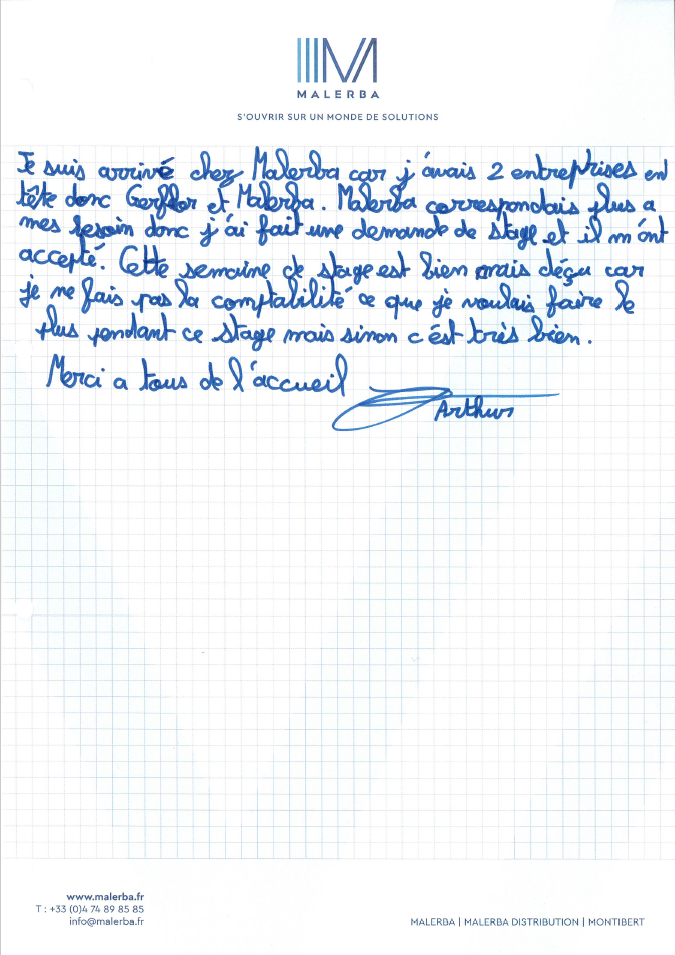 MALERBA
S'OUVRIR SUR UN MONDE DE SOLUTIONS
Je suis arrivé chez Malerba car j'avais 2 entreprises en
tête donc Gerflor et Malerba. Malerba correspondais plus a
mes besoin donc j'ai fait une demande de stage et il m'ont
accepté. Cette semaine de stage est bien mais déçu car
je ne fais pas la comptabilité ce que je voulais faire le
plus pendant ce stage mais sinon c'est très bien.
Merci a tous de l'accueil
Arthur
www.malerba.fr
T : +33 (0)4 74 89 85 85
info@malerba.fr
MALERBA | MALERBA DISTRIBUTION | MONTIBERT